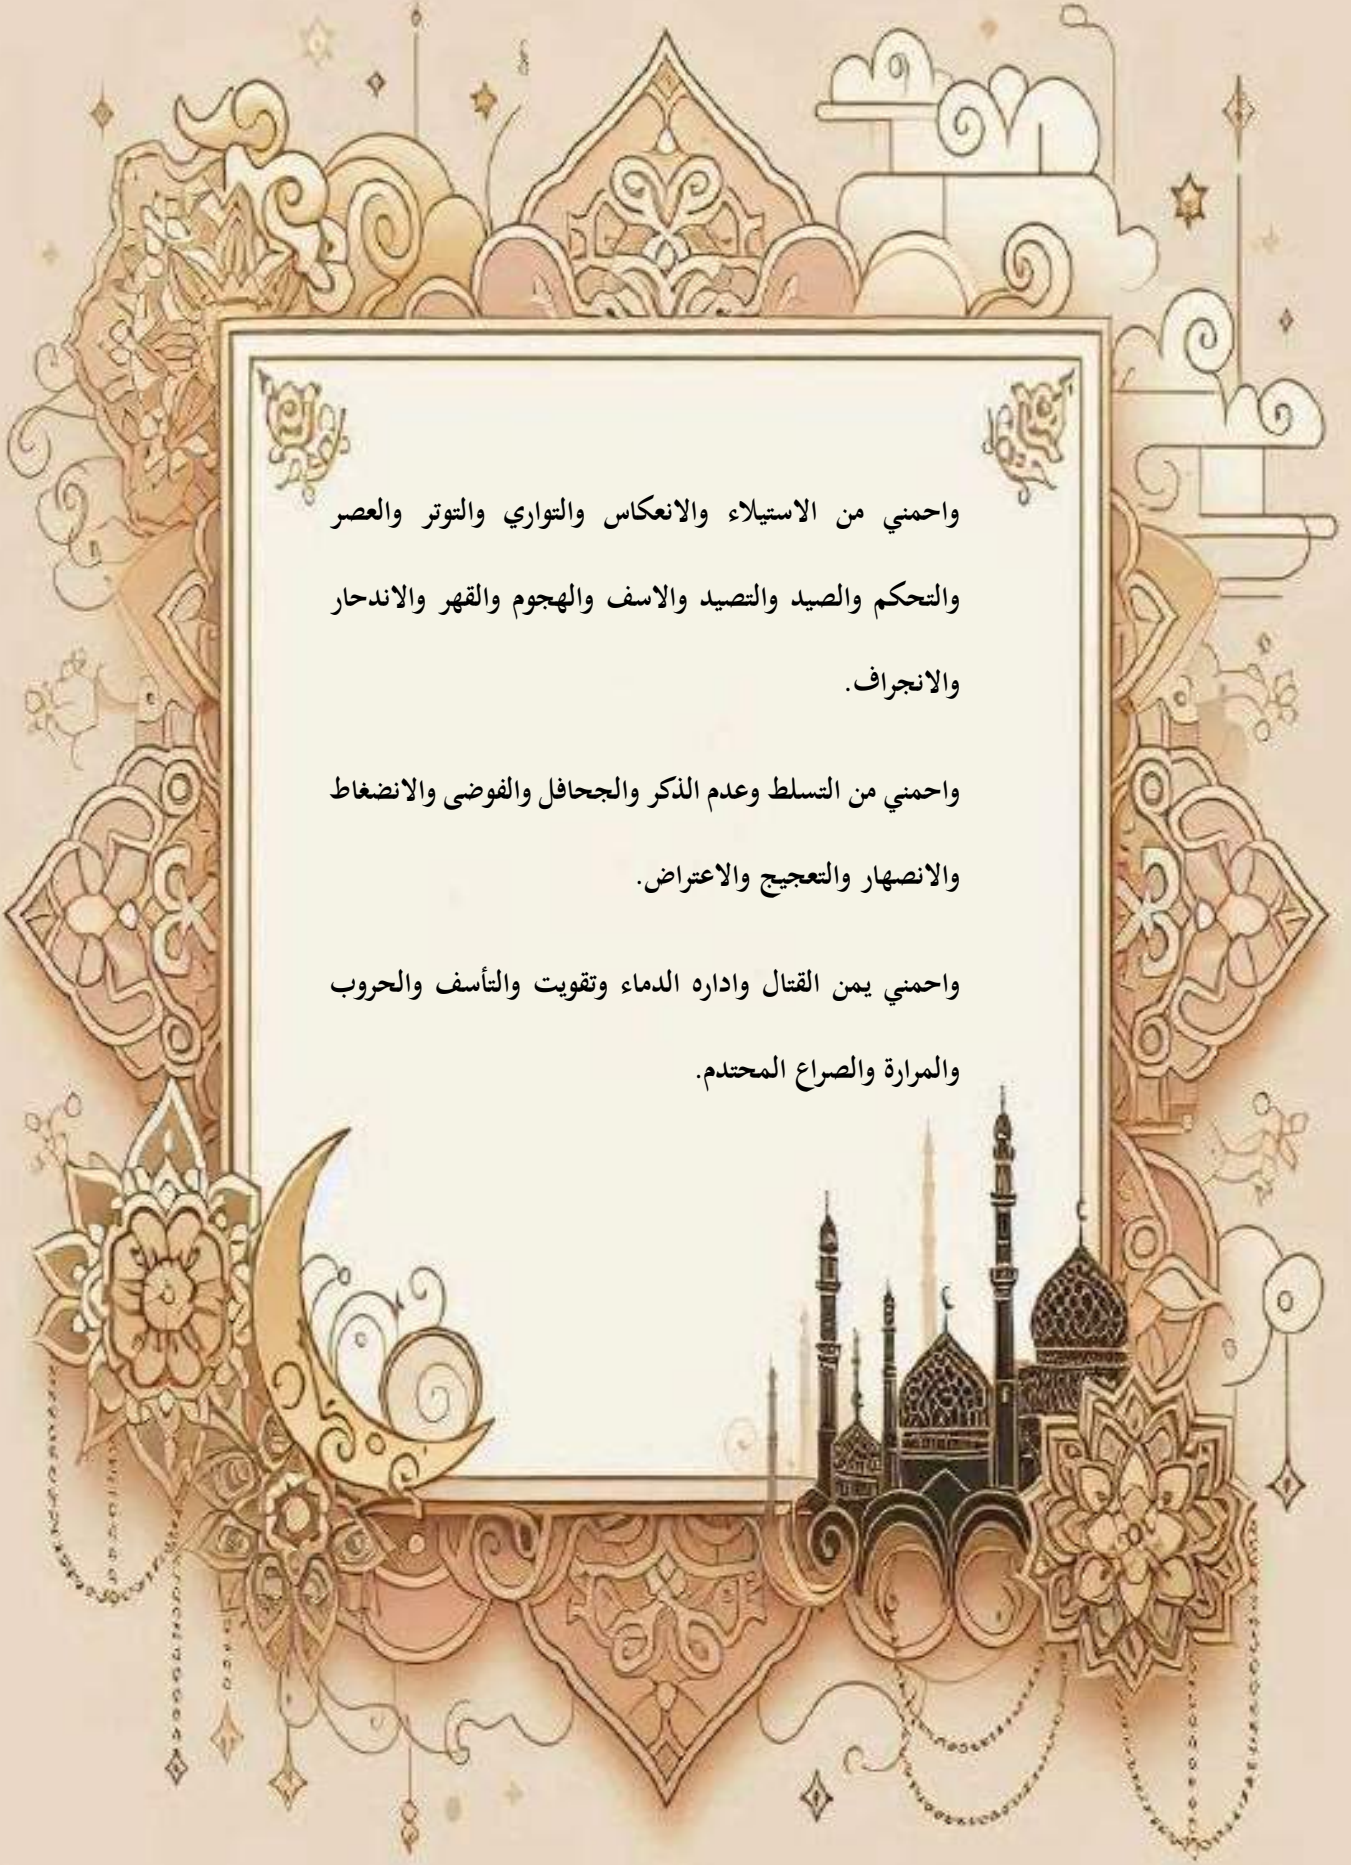 واحمني من الاستيلاء والانعكاس والتواري والتوتر والعصر
والتحكم والصيد والتصيد والاسف والهجوم والقهر والاندحار
والانجراف.
واحمني من التسلط وعدم الذكر والجحافل والفوضى والانضغاط
والانصهار والتعجيج والاعتراض.
واحمني يمن القتال واداره الدماء وتقويت والتأسف والحروب
والمرارة والصراع المحتدم.